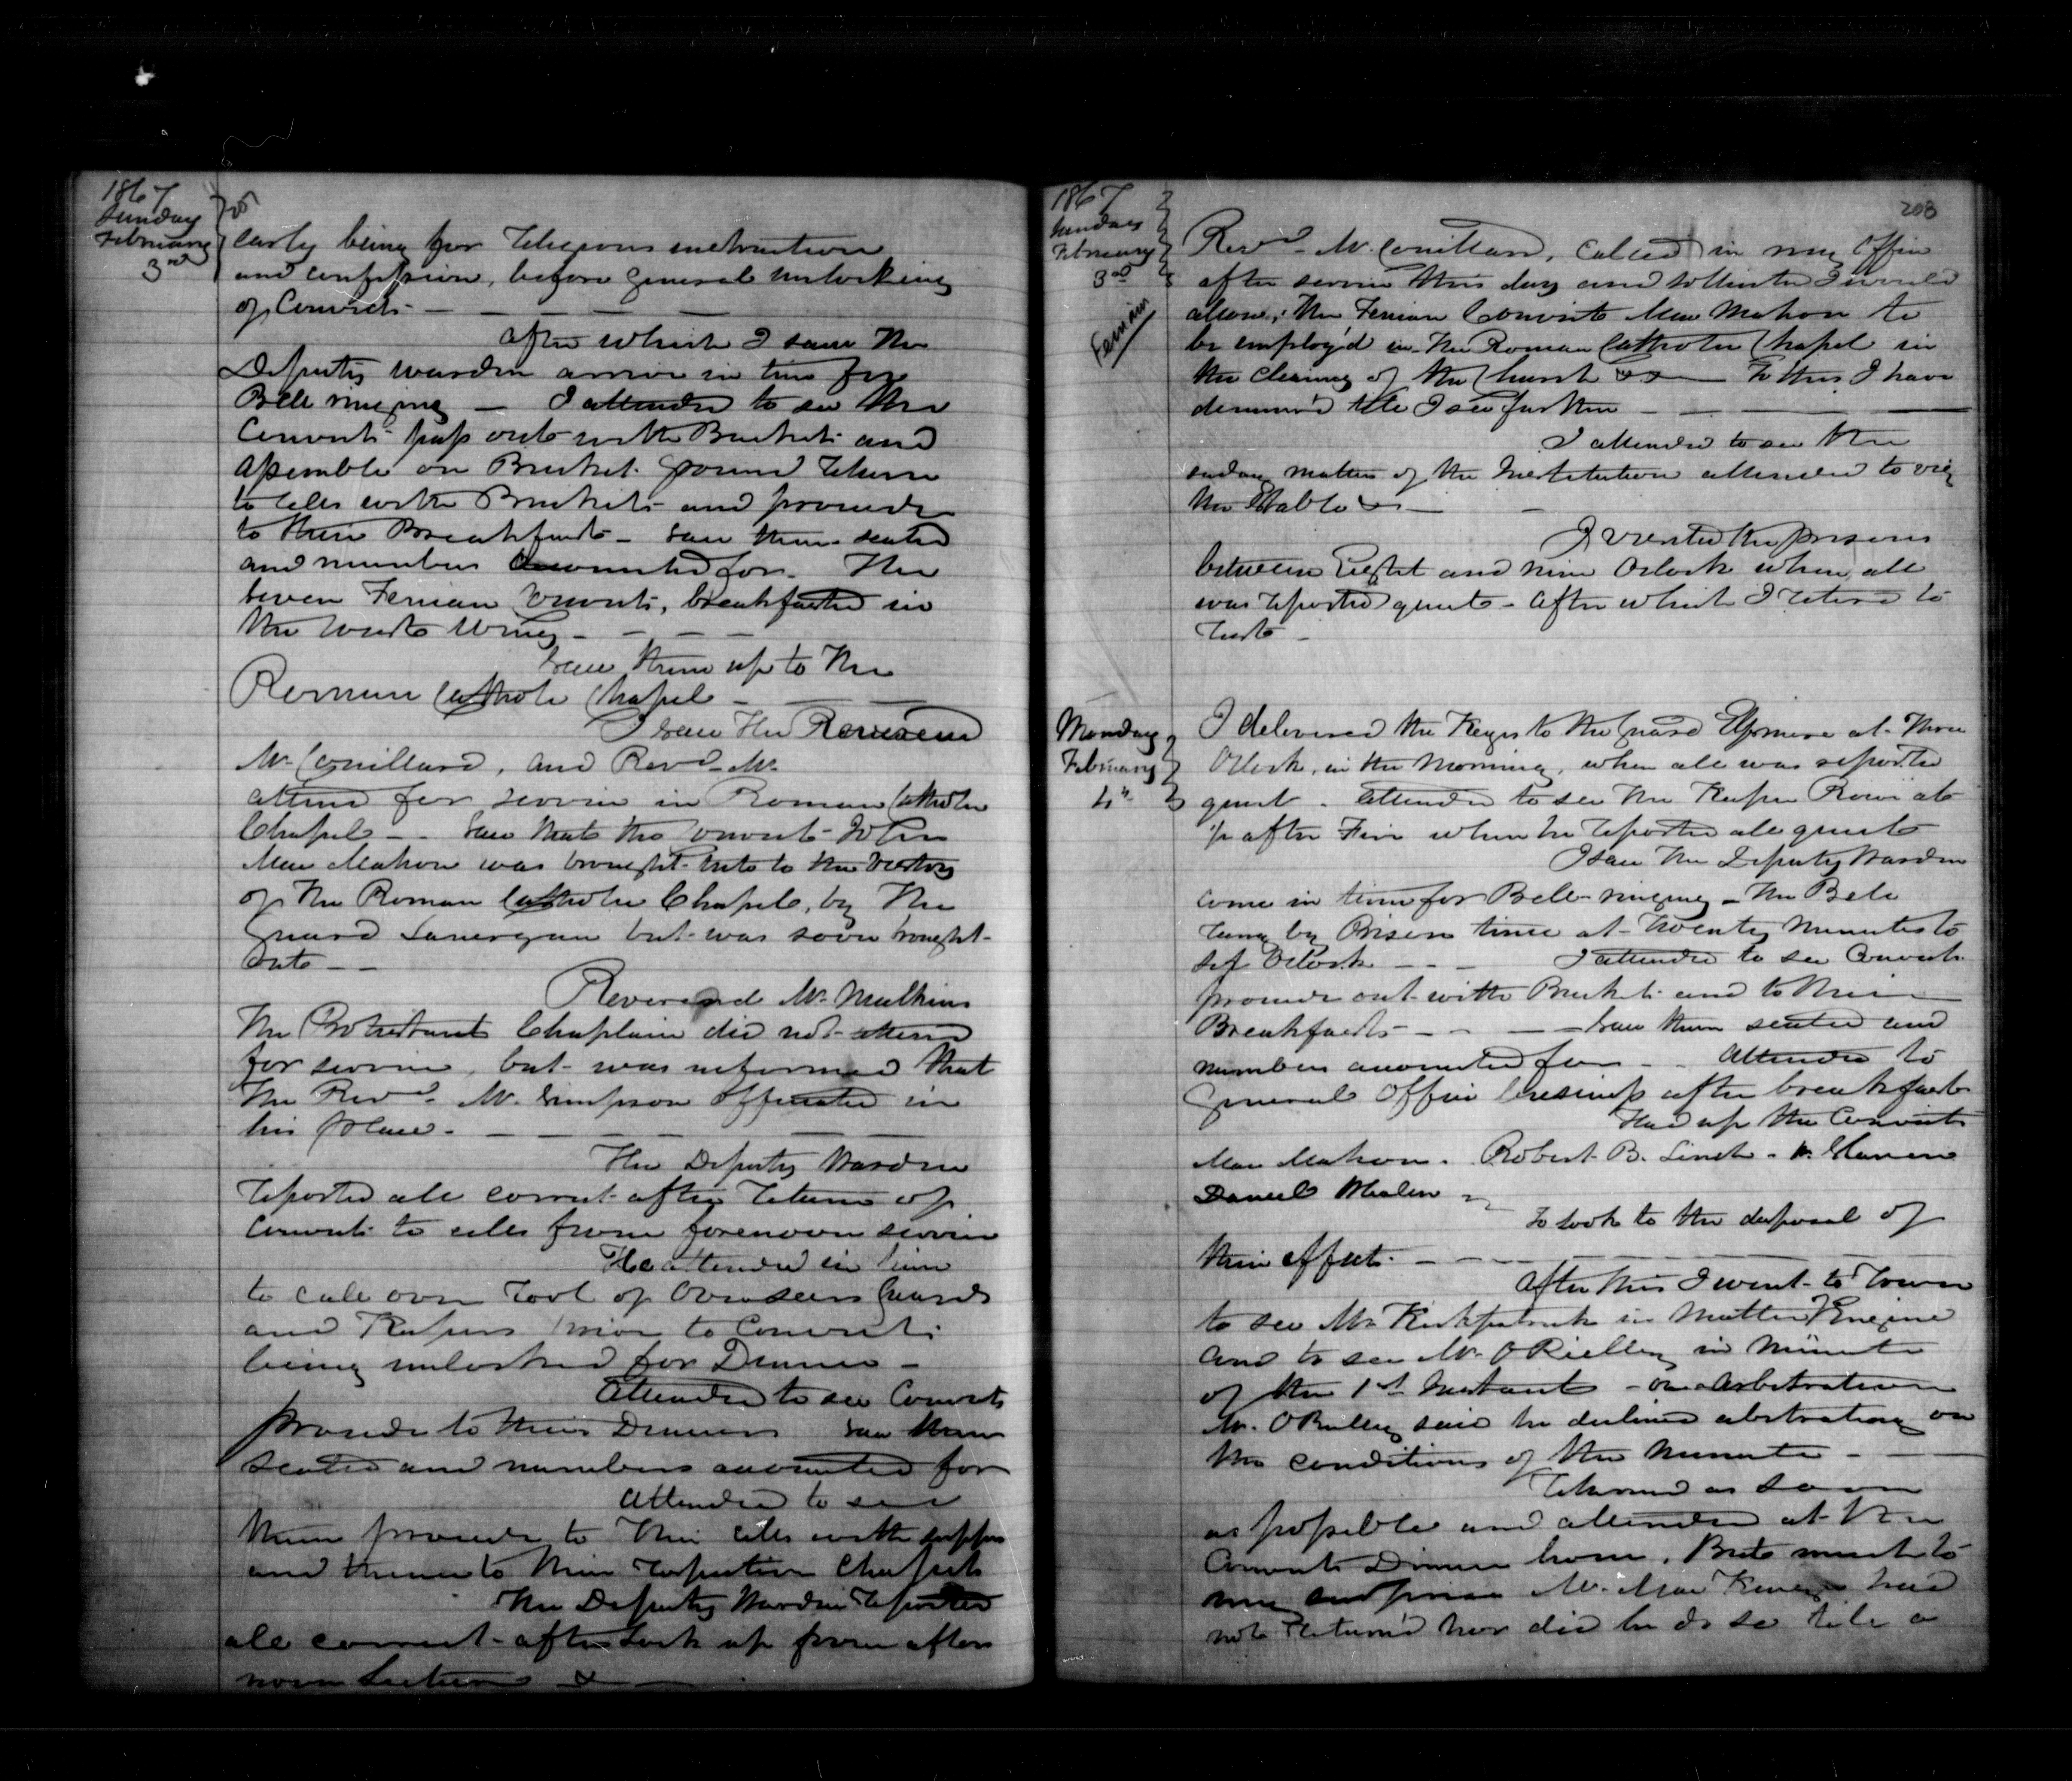 1867
Sunday
February
3rd
early being for Religious instruction
and confession, before general unlocking
of Convicts
after which I saw the
Deputy Warden arrive in time for
Bell ringing I attended to see the
Convicts pass out with Buckets and
assemble on Bucket ground return
to cells with Buckets and proceed
to their Breakfasts saw them seated
and numbers accounted for. The
seven Fenian Convicts, breakfasted in
the West Wing
saw them up to the
Roman Catholic Chapel
I saw the Reverend
Mr. Couillard, and Revd. Mr.
attend for service in Roman Catholic
Chapel saw that the Convict John
Mac Mahon was brought into to the Vestry
of the Roman Catholic Chapel, by the
Guard but was soon brought
out
Reverend Mr. Mulkins
The Protestant Chaplain did not attend
for service, but was informed that
the Revd. Mr. Simpson officiated in
his place.
The Deputy Warden
reported all correct after return of
Convicts to cells from forenoon service
He attended in time
to call over roll of Overseers Guards
and Keepers prior to Convicts
being unlocked for Dinner
Attended to see Convicts
proceed to their Dinners saw them
seated and numbers accounted for
Attended to see
them proceed to their cells with suppers
and thence to their respective Chapels
The Deputy Warden reported
all correct after lock up from after
noon
1867
Sunday
February
3rd
Fenian
203
Revd. Mr. Couillard, called in my Office
after service this day and I would
allow, the Fenian Convict Mac Mahon to
be employ'd in the Roman Catholic Chapel in
the cleaning of the Church To this I have
till I see further
I attended to see the
matters of the Institution attended to viz
the Stable
I visited the prisons
between Eight and nine Oclock when all
was reported quiet after which I retired to
rest
Monday
February
4th
I delivered the Keys to the Guard at Three
Oclock, in the Morning, when all was reported
quiet. attended to see the Keeper at
½ after Five when he reported all quiet
I saw the Deputy Warden
come in time for Bell ringing The Bell
rung by Prison time at Twenty Minutes to
Six Oclock I attended to see Convicts
proceed out with Buckets and to their
Breakfasts saw them seated and
numbers accounted for Attended to
general Office business after breakfast
Had up the Convicts
Mac Mahon. Robert B. Linch.
Daniel Whalen
to look to the disposal of
their effects.
After this I went to Town
to see Mr. Kirkpatrick in Matter Engine
and to see Mr. O Rielley in Minute
of the 1st Instant on Arbitration
Mr. O Reilley said he declined arbitrating on
the conditions of the Minute
Returned as soon
as possible and attended at the
Convicts Dinner hour. But much to
my surprise Mr. Mac had
not Return'd nor did he do so till a